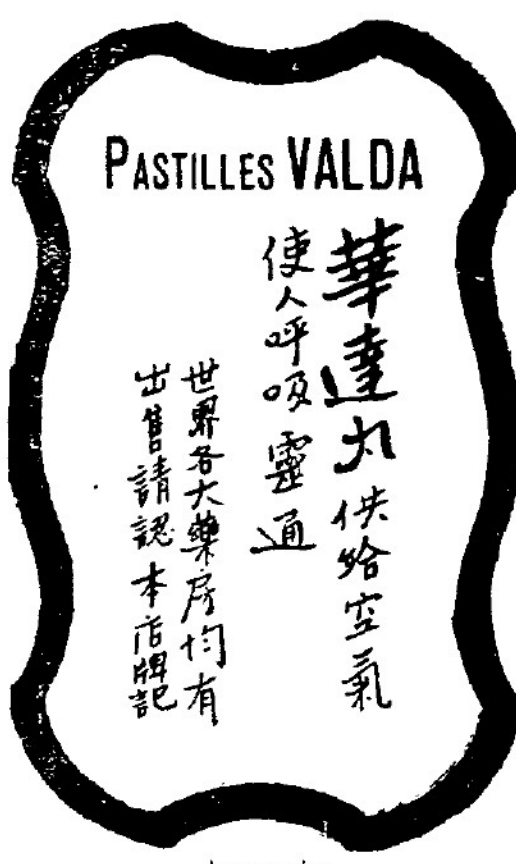 PASTILLES VALDA
華達丸供給空氣
使人呼吸靈通
世界各大藥房均有
出售請認本店牌記